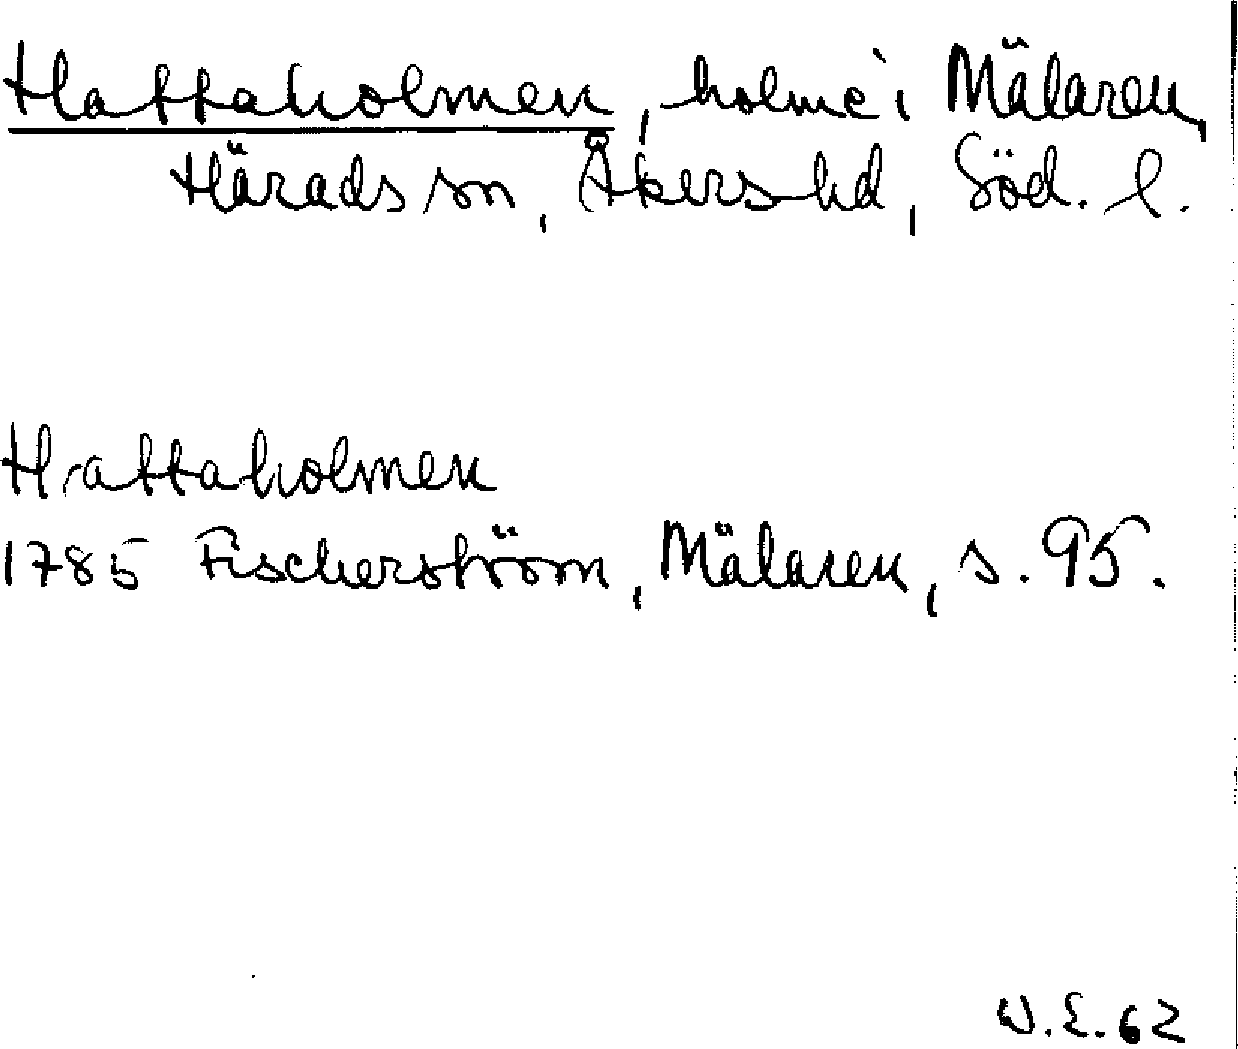 Hattaholmen, holme i Mälaren,
Härads sn, Åkers hd, Söd. l.
Hattaholmen
1785 Fischerström, Mälaren, s. 95.
W.E. 62